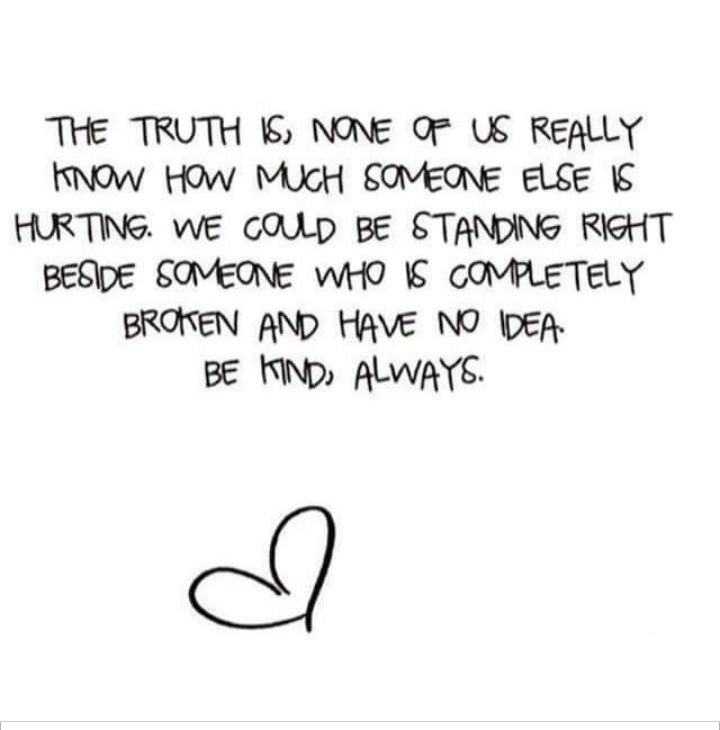 THE TRUTH IS, NONE OF US REALLY
KNOW HOW MUCH SOMEONE ELSE IS
HURTING. WE COULD BE STANDING RIGHT
BESIDE SOMEONE WHO IS COMPLETELY
BROKEN AND HAVE NO IDEA.
BE KIND, ALWAYS.